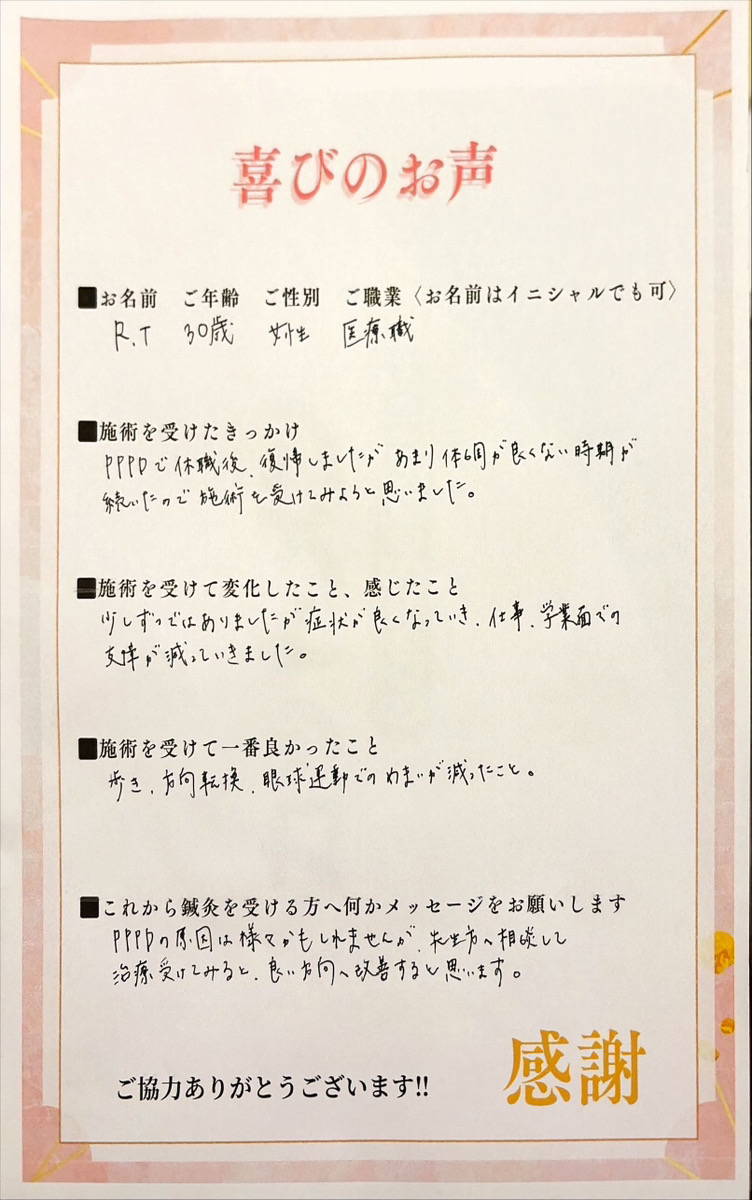 喜びのお声
■お名前　ご年齢　ご性別　ご職業〈お名前はイニシャルでも可〉
R.T　30歳　女性　医療職
■施術を受けたきっかけ
PPPDで休職後、復帰しましたが あまり体調が良くない時期が
続いたので施術を受けてみようと思いました。
■施術を受けて変化したこと、感じたこと
少しずつではありましたが症状が良くなっていき、仕事、学業面での
支障が減っていきました。
■施術を受けて一番良かったこと
歩き、方向転換、眼球運動でのめまいが減ったこと。
■これから鍼灸を受ける方へ何かメッセージをお願いします
PPPDの原因は様々かもしれませんが、先生方へ相談して
治療受けてみると、良い方向へ改善すると思います。
感謝
ご協力ありがとうございます!!